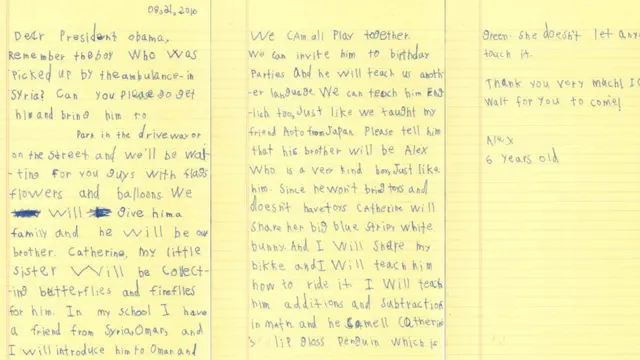 08,21,2010
Dear President obama,
Remember the boy who was
picked up by the ambulance in
Syria? Can you please go get
him and bring him to
Park in the driveway or
on the street and we'll be wai-
ting for you guys with flags
flowers and balloons. We
will give him a
family and he will be our
brother. Catherine, my little
sister will be collect-
ing butterflies and fireflies
for him. In my school I have
a friend from Syria, Omar, and
I will introduce him to Omar and
We can all play together.
We can invite him to birthday
parties and he will teach us anoth-
er language. We can teach him Eng
lish too, just like we taught my
friend Aoto from Japan. Please tell him
that his brother will be Alex
who is a very kind boy, Just like
him. Since he won't bring toys and
doesn't have toys Catherine will
share her big blue stripy white
bunny. And I will share my
bikke and I will teach him
how to ride it. I will teach
him additions and subtractions
in math and he smell Catherine
's lip gloss penguin which is
green. She doesn't let any
touch it.
Thank you very much! I c
wait for you to come!
Alex
6 years old